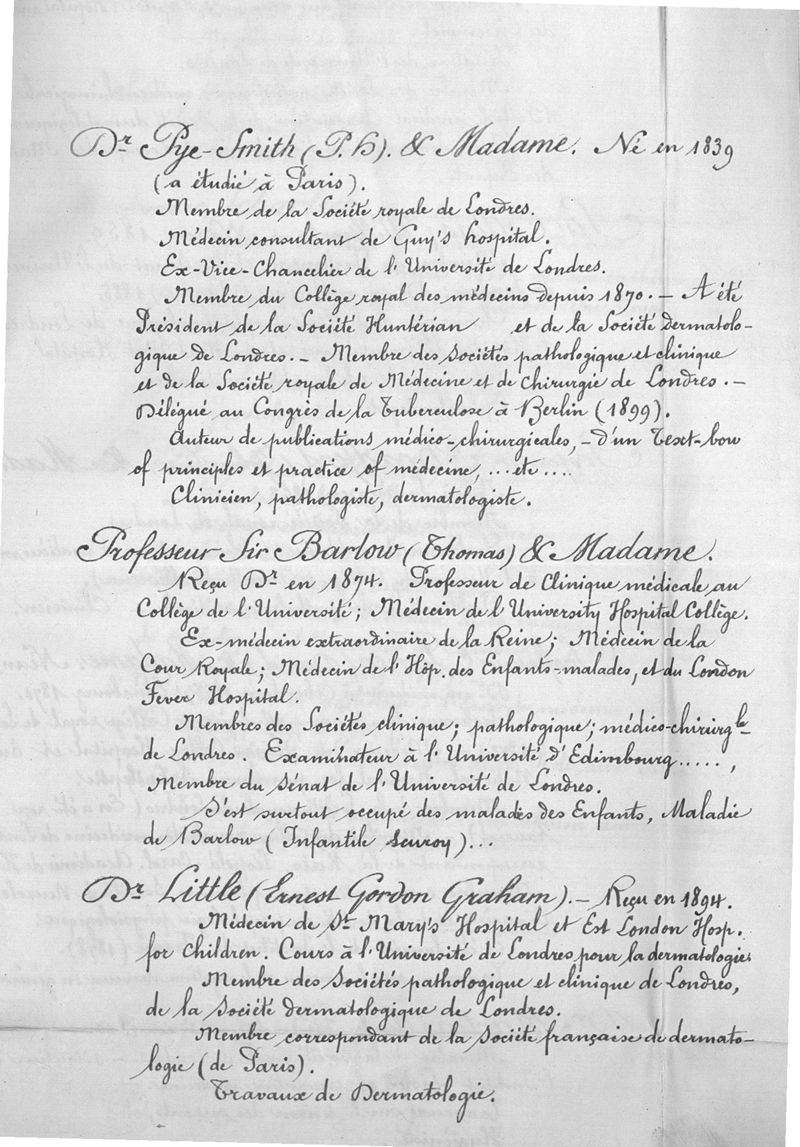 Dr Pye-Smith (P.h). & Madame. Né en 1839
(a étudié à Paris).
Membre de la Société royale de Londres.
Médecin consultant de Guy's hospital.
Ex-Vice-Chancelier de l'Université de Londres.
Membre du Collège royal des médecins depuis 1870. — A été
Président de la Société Huntérian et de la Société Dermatolo-
gique de Londres. — Membre des Sociétés pathologique et clinique
et de la Société royale de Médecine et de Chirurgie de Londres. —
Délégué au Congrès de la Tuberculose à Berlin (1899).
Auteur de publications médico-chirurgicales, — d'un Text-bow
of principles et practice of médecine, ... etc ....
Clinicien, pathologiste, dermatologiste.
Professeur Sir Barlow (Thomas) & Madame.
Reçu Dr en 1874. Professeur de Clinique médicale au
Collège de l'Université; Médecin de l'University Hospital Collège.
Ex-médecin extraordinaire de la Reine; Médecin de la
Cour Royale; Médecin de l'Hôp. des Enfants-malades, et du London
Fever Hospital.
Membres des Sociétés clinique; pathologique; médico-chirurgle
de Londres. Examinateur à l'Université d'Edimbourg.....,
Membre du Sénat de l'Université de Londres.
S'est surtout occupé des malades des Enfants, Maladie
de Barlow (Infantile scuroy)...
Dr Little (Ernest Gordon Graham). — Reçu en 1894.
Médecin de St Mary's Hospital et Est London Hosp.
for children. Cours à l'Université de Londres pour la dermatologie.
Membre des Sociétés pathologique et clinique de Londres,
de la Société dermatologique de Londres.
Membre correspondant de la Société française de dermato-
logie (de Paris).
Travaux de Dermatologie.